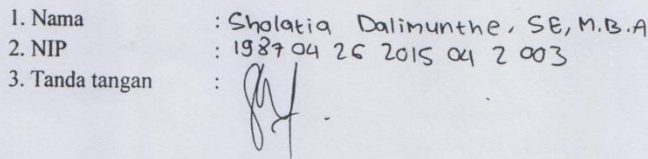 1. Nama : Sholatia Dalimunthe, SE, M.B.A
2. NIP : 198704 26 2015 04 2 003
3. Tanda tangan :